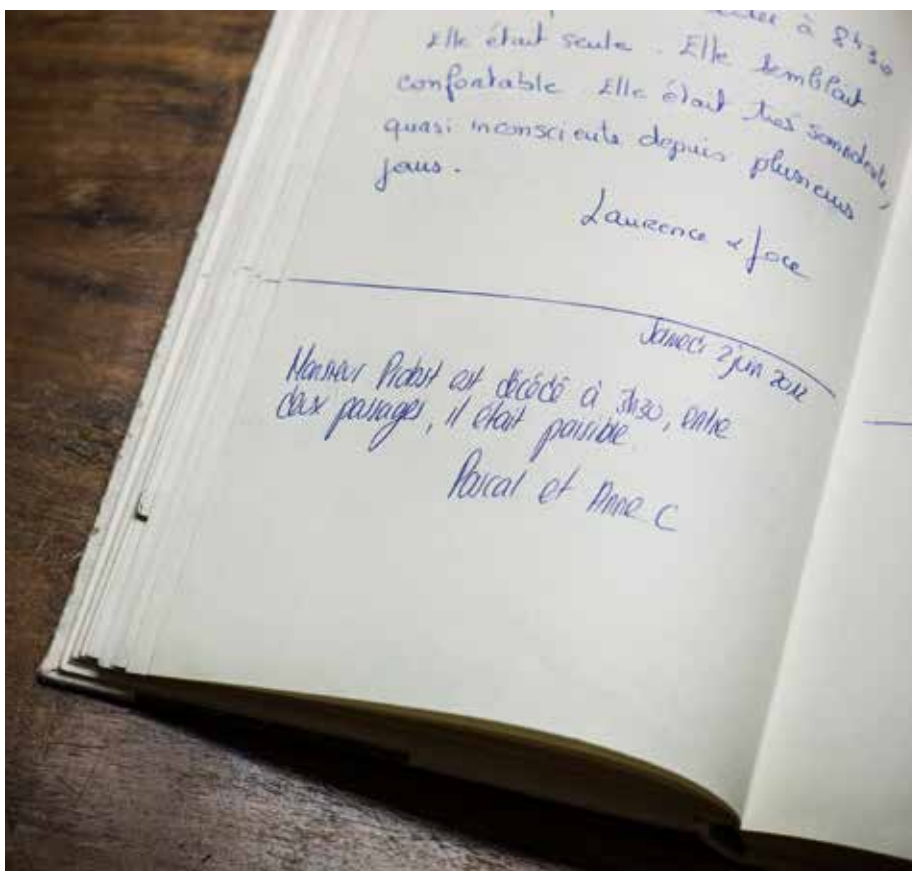 à 8h30
Elle était seule. Elle semblait
confortable Elle était très somnolente,
quasi inconsciente depuis plusieurs
jours.
Laurence & Joce
Samedi 2 juin 2012
Monsieur Probst est décédé à 3h30, entre
deux passages, il était paisible.
Pascal et Anne C